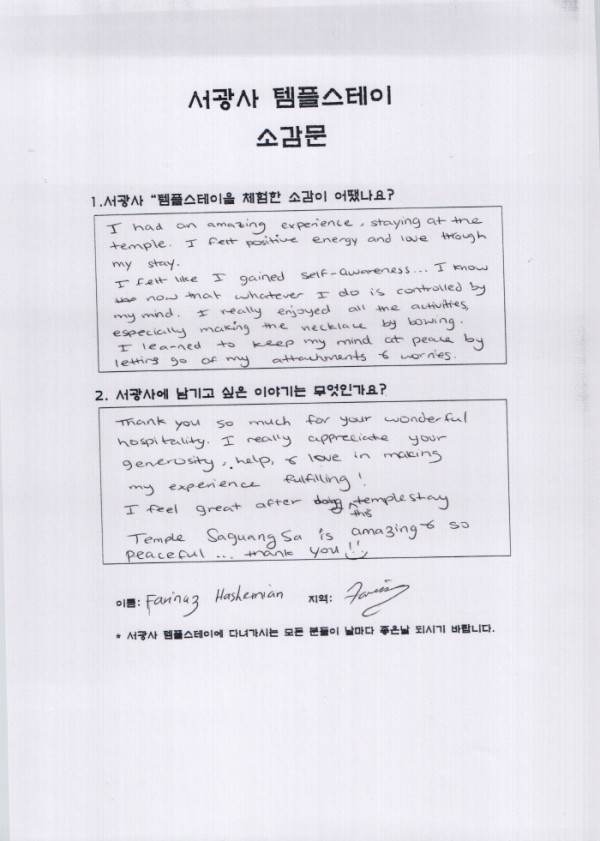 서광사 템플스테이
소감문
1.서광사 "템플스테이을 체험한 소감이 어땠나요?
I had an amazing experience, staying at the
temple. I felt positive energy and love through
my stay.
I felt like I gained self-awareness... I know
now that whatever I do is controlled by
my mind. I really enjoyed all the activities,
especially making the necklace by bowing.
I learned to keep my mind at peace by
letting go of my attachments & worries.
2. 서광사에 남기고 싶은 이야기는 무엇인가요?
Thank you so much for your wonderful
hospitality. I really appreciate your
generosity, help, & love in making
my experience fulfilling!
I feel great after doing this templestay
Temple Saguang Sa is amazing & so
peaceful... thank you!!
이름: Farinaz Hashemian 지역:
* 서광사 템플스테이에 다녀가시는 모든 분들이 날마다 좋은날 되시기 바랍니다.